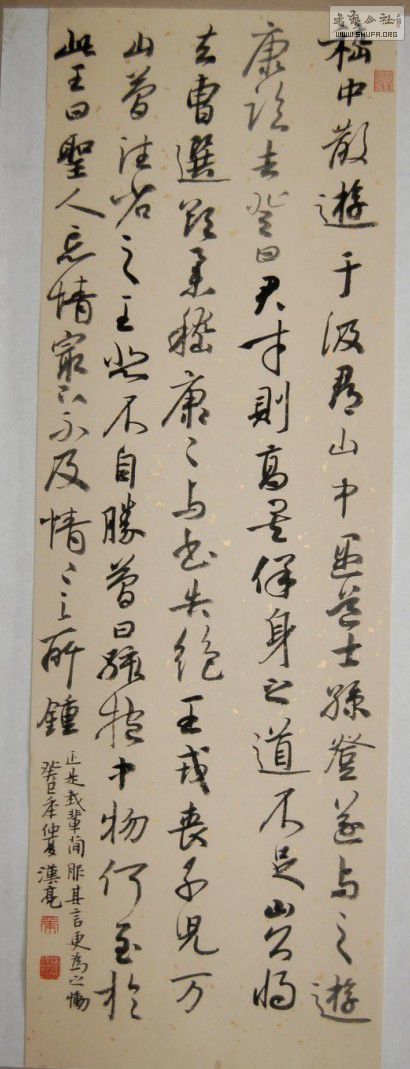 嵇中散遊于汲郡山中遇道士孫登遂与之遊
康臨去登曰君才則高矣保身之道不足山公將
去曹選欲舉嵇康〻与書告絕王戎喪子兒万
山簡往省之王悲不自勝簡曰孩抱中物何至於
此王曰聖人忘情最下不及情〻之所鍾
正是我輩簡服其言更為之慟
癸巳年仲夏漢亮
WWW.SHUFA.ORG